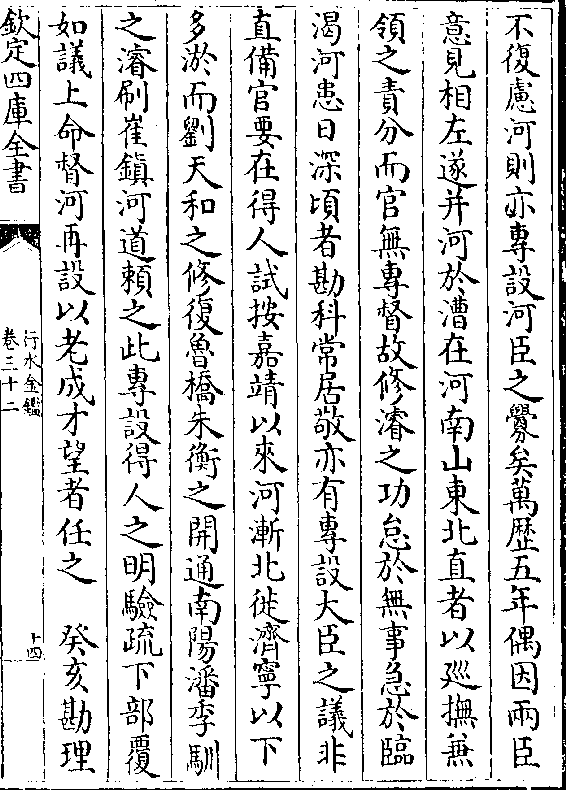 不復慮河則亦專設河臣之釁矣萬歴五年偶因兩臣
意見相左遂并河於漕在河南山東北直者以廵撫兼
領之責分而官無專督故修濬之功怠於無事急於臨
渴河患日深頃者勘科常居敬亦有專設大臣之議非
直備官要在得人試按嘉靖以來河漸北徙濟寧以下
多淤而劉天和之修復魯橋朱衡之開通南陽潘季馴
之濬刷崔鎮河道頼之此專設得人之明驗疏下部覆
如議上命督河再設以老成才望者任之　癸亥勘理
欽定四庫全書
行水金鑑
卷三十二
十四